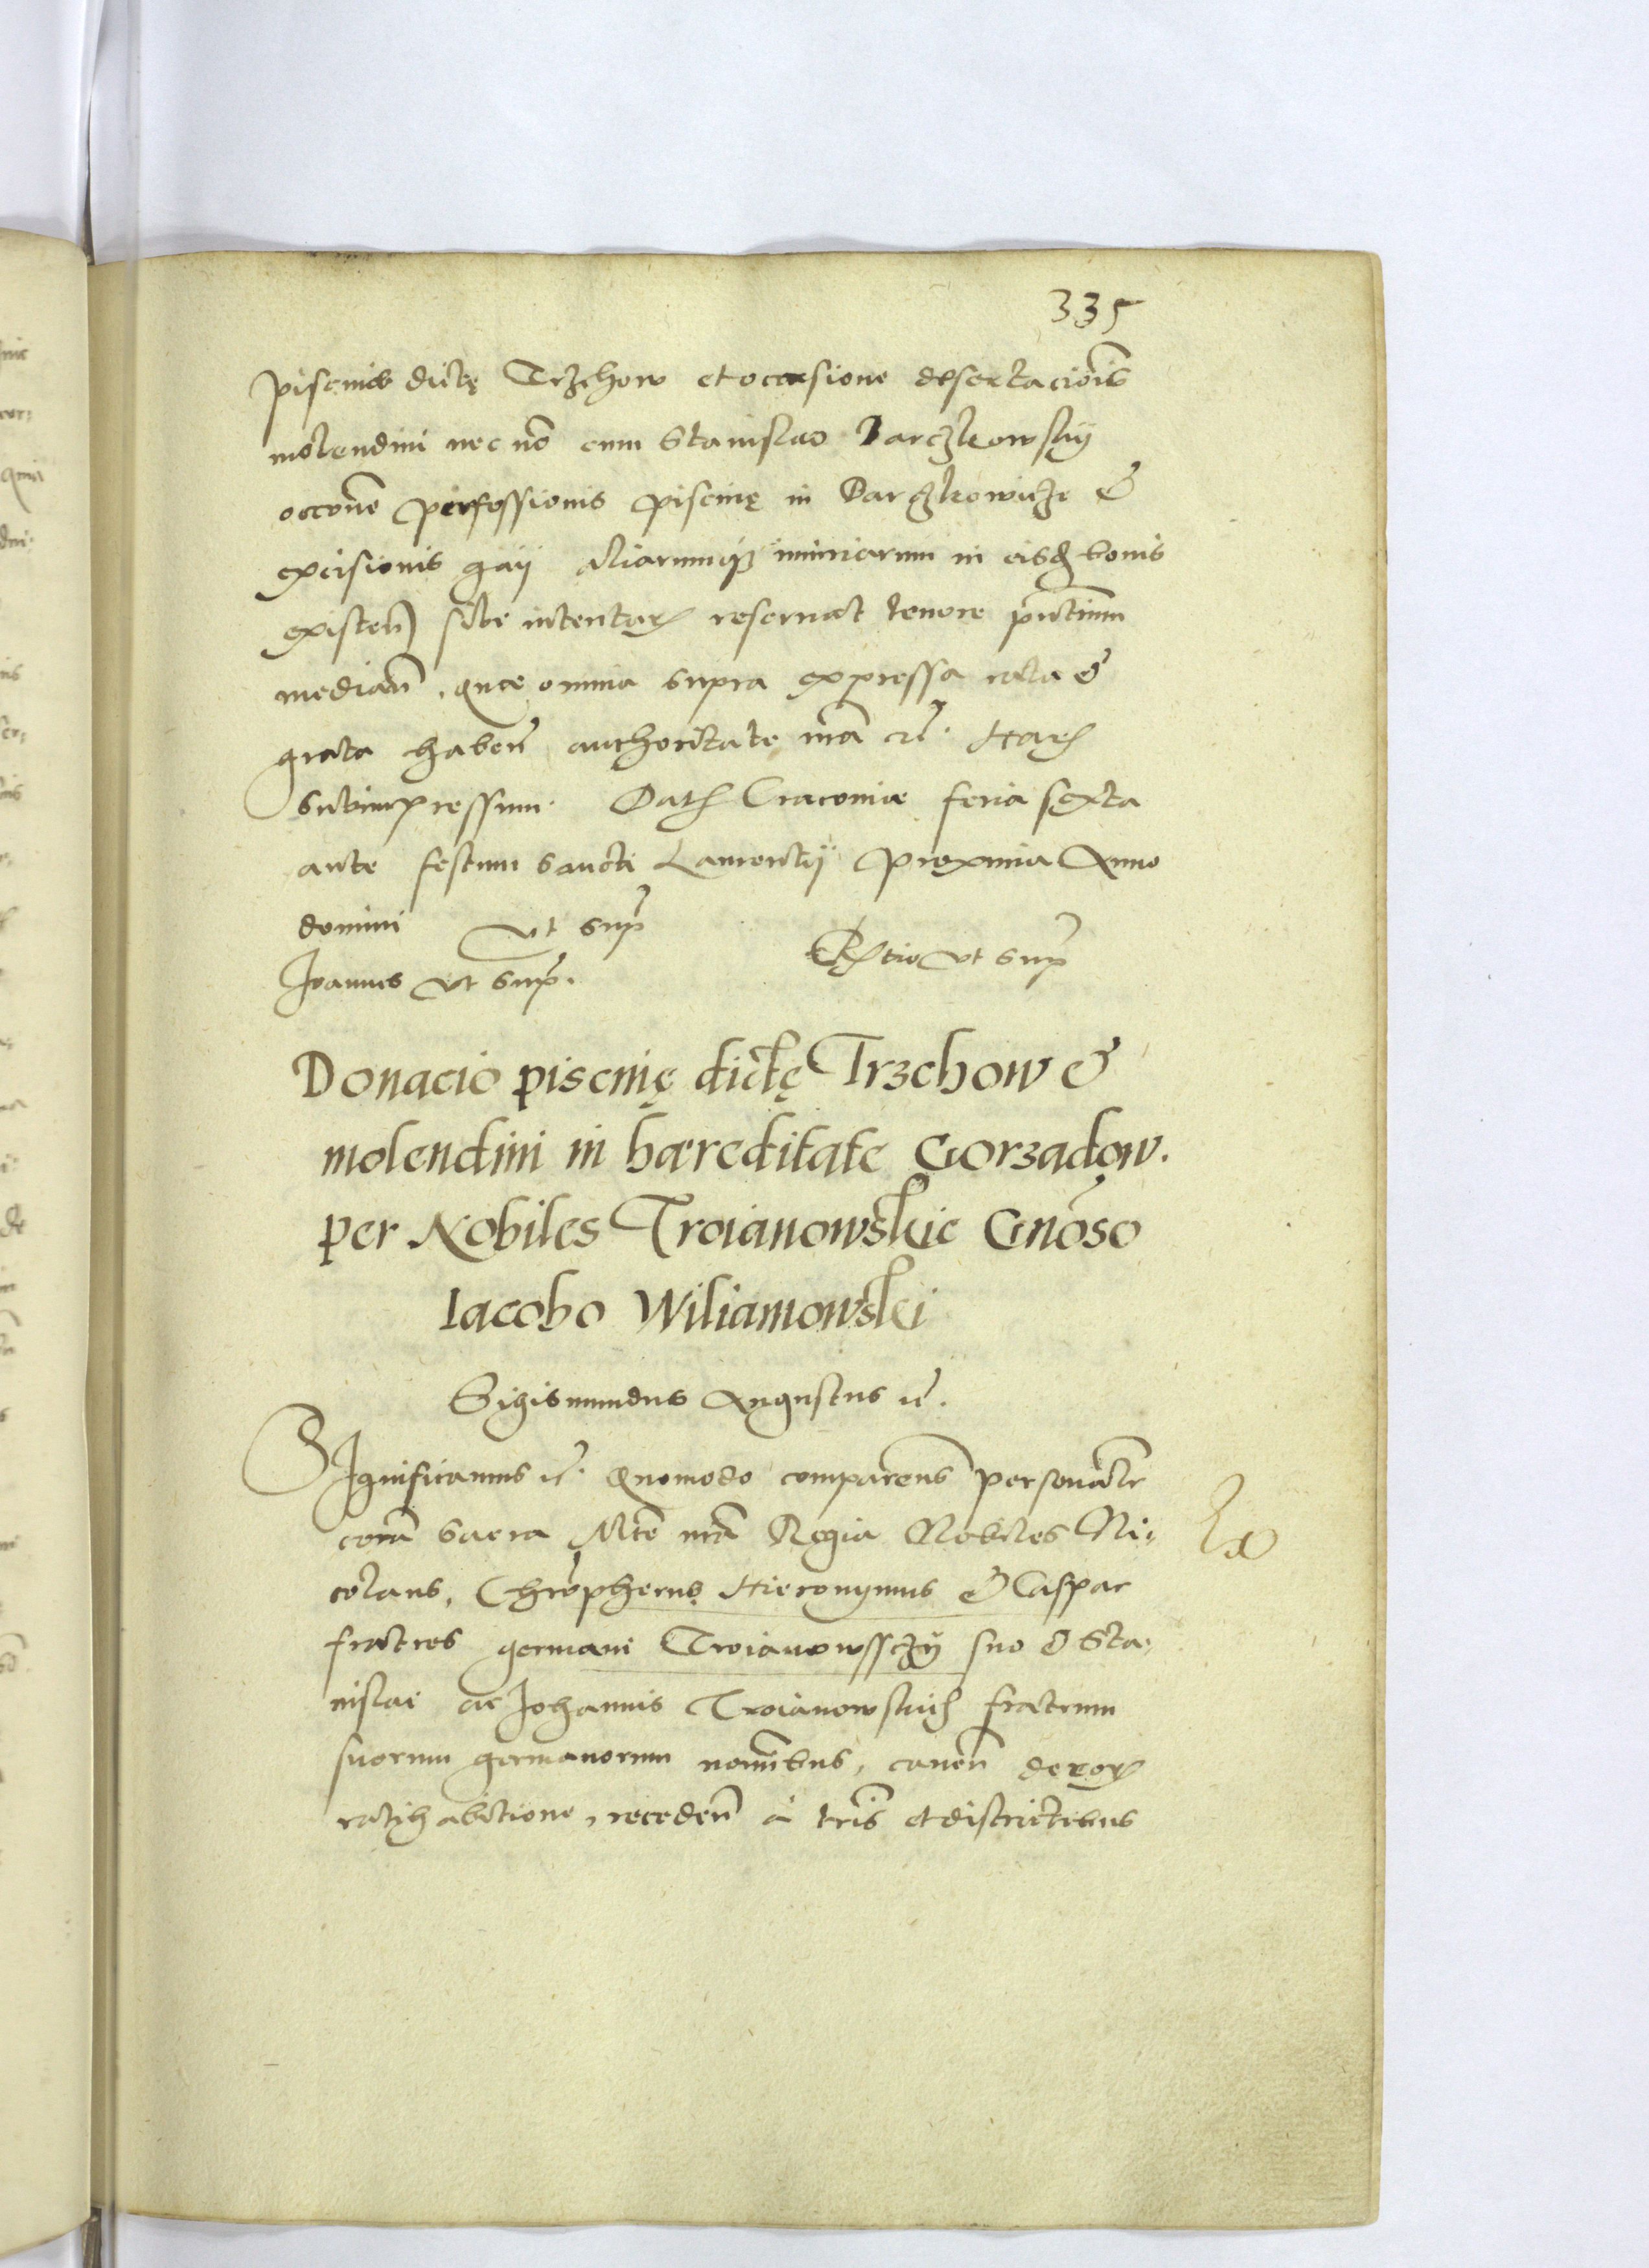 335
piscinis dictę Trzchow et occasione desertacionis
molendini nec nō cum Stanislao Darczkowsky
occōne perfossionis piscinę in Darczkowicze &
excisionis gaij aliarumq iniuriarum in eisd bonis
existen sibi intentar reservat tenore pntium
median. quae omnia supra expressa rata &
grata haben authoritate nrā etc. Har
subimpressum. Dat Cracoviae feria sexta
ante festum Sancti Laurentij proxima Anno
domini ut sup
Joannes ut sup. Rtio ut sup
Donacio piscinę dictę Trzchow &
molendini in haereditate Gorzadow.
per Nobiles Troianowskie Gnōso
Iacobo Wiliamowski
Sigismundus Augustus etc.
Significamus etc. Quomodo comparens personālr
corā Sacra Mte nrā Regia Nobiles Ni,
colaus, Chrōpherus Hieronymus & Caspar
fratres germani Troianowssczy suo & Sta,
nislai ac Johannis Troianowskich fratrum
suorum germanorum nomībus, caven de eor
ratihabitione, receden à trīs et districtibus